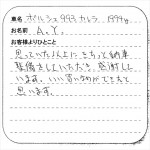 車名 ポルシェ993カレラ. 1994y.
お名前 A.Y.
お客様よりひとこと
思っていた以上に きちっと納車
整備をしていただき、感謝して
います。いい買い物ができたと
思います。